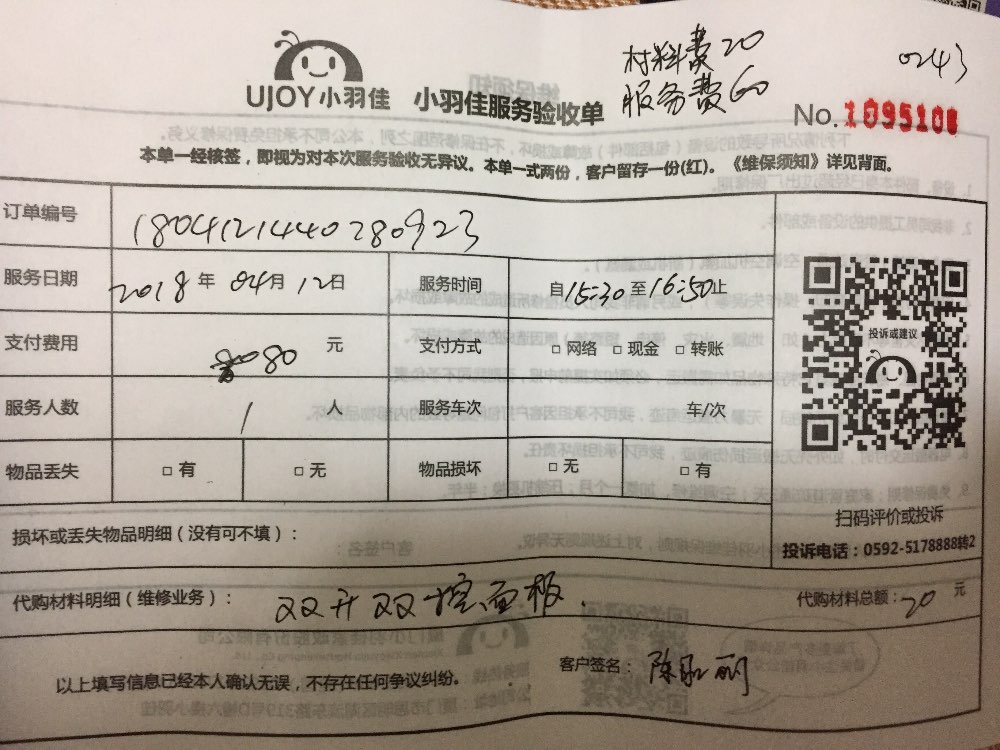 材料费20
服务费60
0243
UJOY小羽佳 小羽佳服务验收单
No.1095108
本单一经核签，即视为对本次服务验收无异议。本单一式两份，客户留存一份(红)。《维保须知》详见背面。
订单编号 1804121440280923
服务日期 2018年04月12日 服务时间 自15:30至16:50止
支付费用 80元 支付方式 □网络 □现金 □转账
服务人数 1人 服务车次 车/次
物品丢失 □有 □无 物品损坏 □无 □有
投诉或建议
扫码评价或投诉
投诉电话：0592-5178888转2
损坏或丢失物品明细（没有可不填）：
代购材料明细（维修业务）： 双开双控面板. 代购材料总额：20元
以上填写信息已经本人确认无误，不存在任何争议纠纷。 客户签名：陈 丽